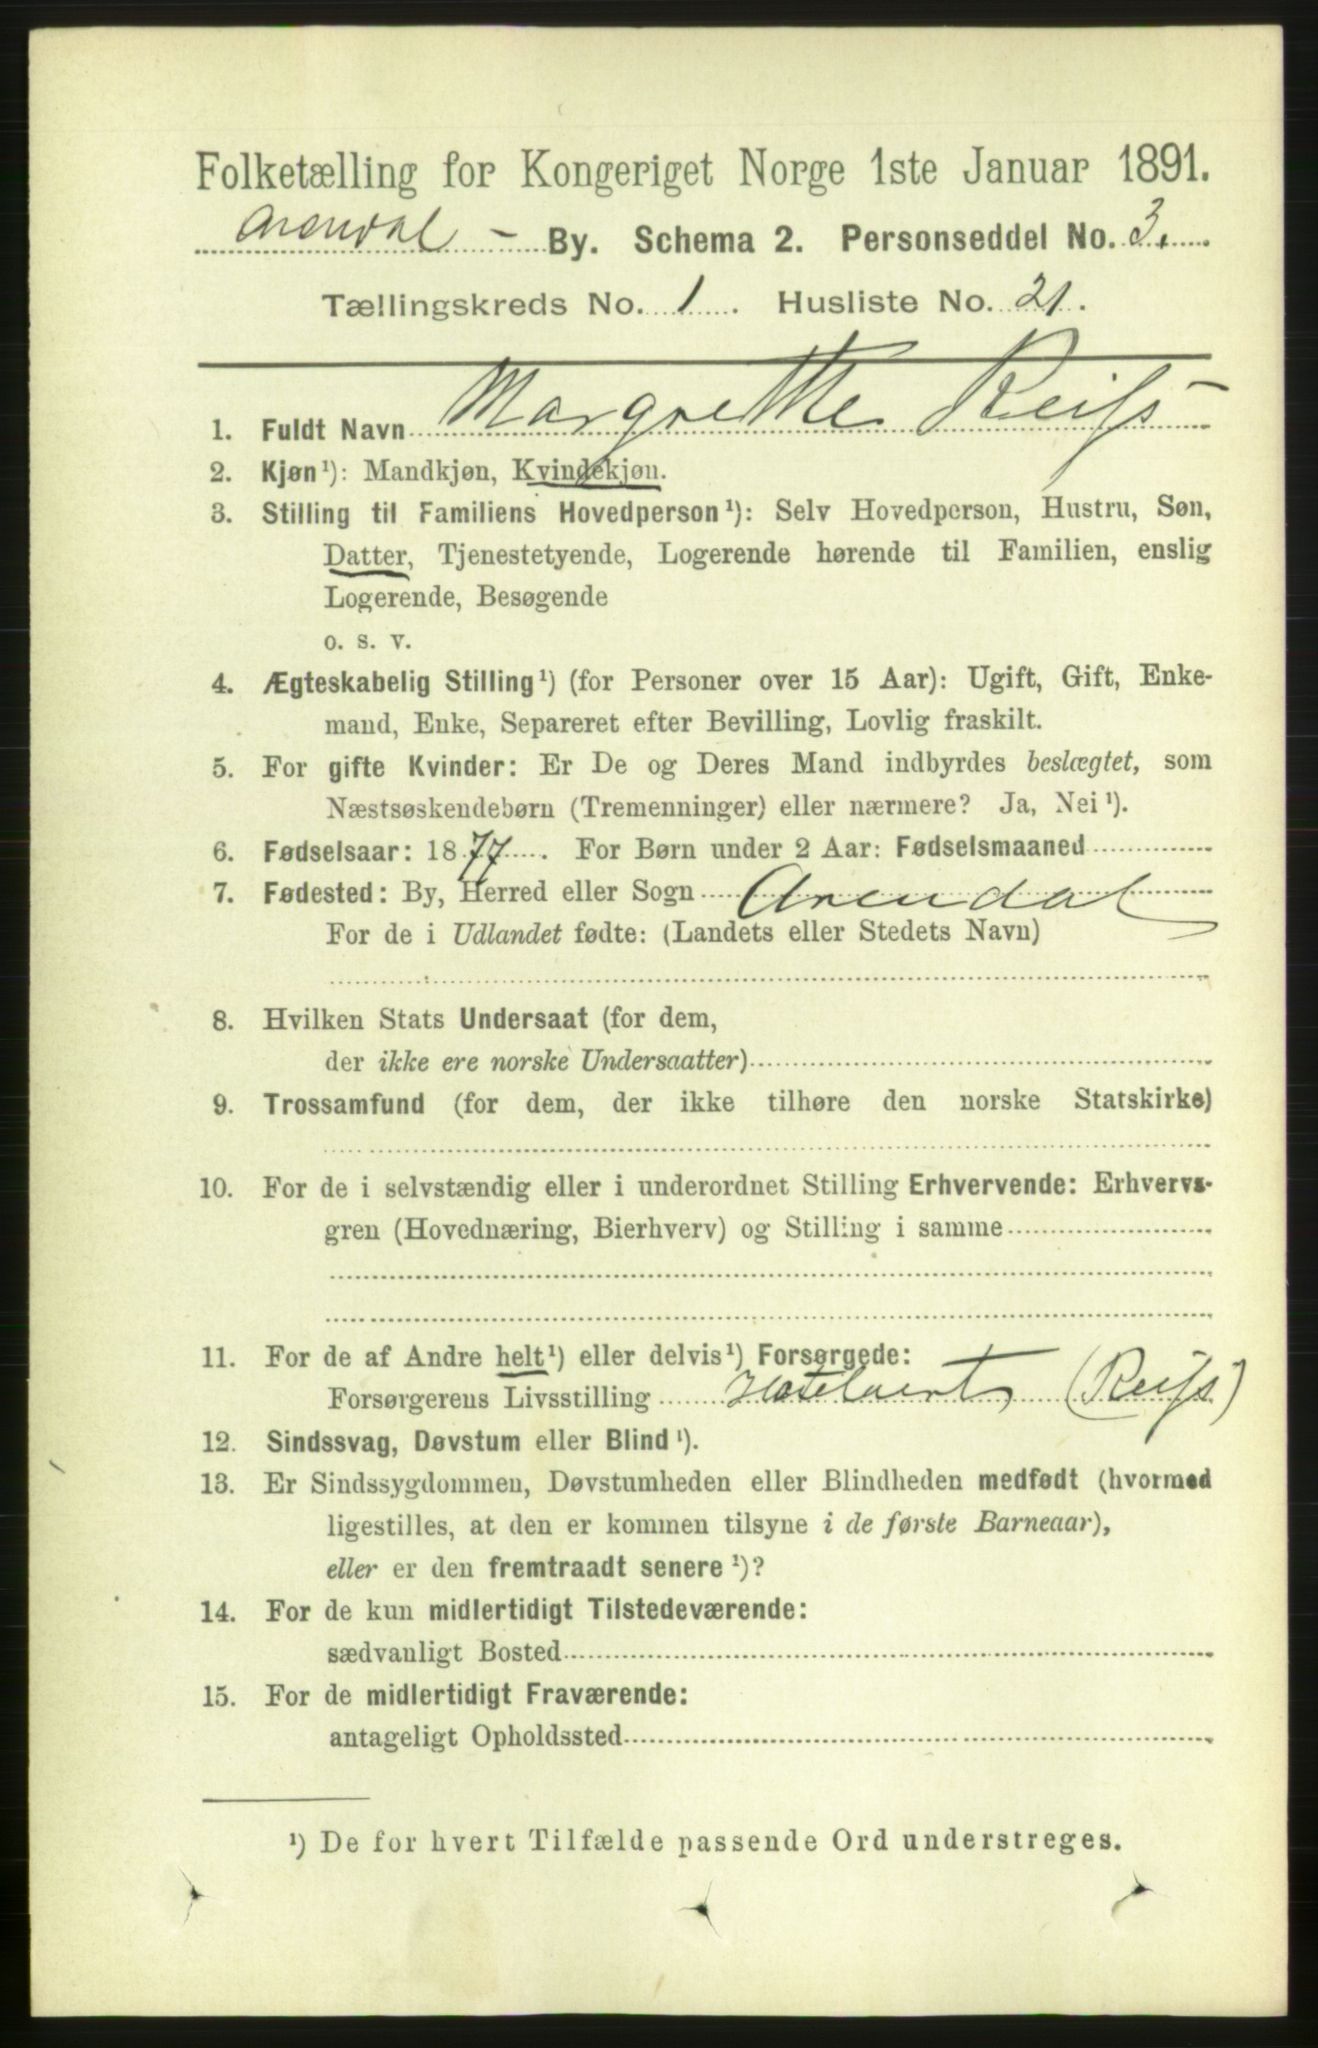 Folketælling for Kongeriget Norge 1ste Januar 1891.
Arendal - By. Schema 2. Personseddel No. 3.
Tællingskreds No. 1. Husliste No. 21.
1. Fuldt Navn Margrethe Reiss
2. Kjøn¹): Mandkjøn, Kvindekjøn.
3. Stilling til Familiens Hovedperson¹): Selv Hovedperson, Hustru, Søn,
Datter, Tjenestetyende, Logerende hørende til Familien, enslig
Logerende, Besøgende
o. s. v.
4. Ægteskabelig Stilling¹) (for Personer over 15 Aar): Ugift, Gift, Enke-
mand, Enke, Separeret efter Bevilling, Lovlig fraskilt.
5. For gifte Kvinder: Er De og Deres Mand indbyrdes beslægtet, som
Næstsøskendebørn (Tremenninger) eller nærmere? Ja, Nei¹).
6. Fødselsaar: 1877. For Børn under 2 Aar: Fødselsmaaned
7. Fødested: By, Herred eller Sogn Arendal
For de i Udlandet fødte: (Landets eller Stedets Navn)
8. Hvilken Stats Undersaat (for dem,
der ikke ere norske Undersaatter)
9. Trossamfund (for dem, der ikke tilhøre den norske Statskirke)
10. For de i selvstændig eller i underordnet Stilling Erhvervende: Erhvervs-
gren (Hovednæring, Bierhverv) og Stilling i samme
11. For de af Andre helt¹) eller delvis¹) Forsørgede:
Forsørgerens Livsstilling Hotelvert (Reiss)
12. Sindssvag, Døvstum eller Blind¹).
13. Er Sindssygdommen, Døvstumheden eller Blindheden medfødt (hvormed
ligestilles, at den er kommen tilsyne i de første Barneaar),
eller er den fremtraadt senere¹)?
14. For de kun midlertidigt Tilstedeværende:
sædvanligt Bosted
15. For de midlertidigt Fraværende:
antageligt Opholdssted
¹) De for hvert Tilfælde passende Ord understreges.